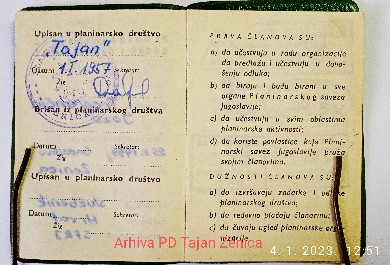 Upisan u planinarsko društvo
„Tajan"
Datum 1.I.1957 Sekretar:
Žig
ZENICA
Brisan iz planinarskog društva
Datum Sekretar:
Žig
Upisan u planinarsko društvo
Datum Sekretar:
Žig
PRAVA ČLANOVA SU:
a) da učestvuju u radu organizacije
da predlažu i učestvuju u dono-
šenju odluka;
b) da biraju i budu birani u sve
organe Planinarskog saveza
Jugoslavije;
c) da učestvuju u svim oblicima
planinarske aktivnosti;
d) da koriste povlastice koje Plani-
narski savez Jugoslavije pruža
svojim članovima.
DUŽNOSTI ČLANOVA SU:
a) da izvršavaju zadatke i odluke
planinarskog društva;
b) da redovno plaćaju članarinu;
c) da čuvaju ugled planinarske org
nizacije
Arhiva PD Tajan Zenica
4. 1. 2023. 12:51